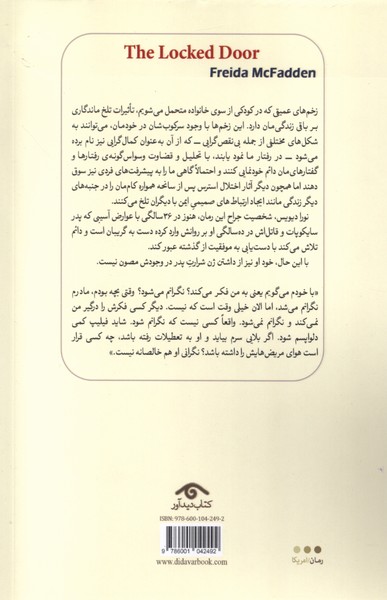 The Locked Door
Freida McFadden
زخم‌های عمیقی که در کودکی از سوی خانواده متحمل می‌شویم، تأثیرات تلخ ماندگاری
بر باقی زندگی‌مان دارد. این زخم‌ها با وجود سرکوب‌شان در خودمان، می‌توانند به
شکل‌های مختلق از جمله بی‌نقص‌گرایی — که از آن به‌عنوان کمال‌گرایی نیز نام برده
می‌شود — در رفتار ما نمود یابند، با تحلیل و قضاوت وسواس‌گونه‌ی رفتارها و
گفتارهای‌مان دائم خودنمایی کنند و احتمالاً گاهی ما را به پیشرفت‌های فردی نیز سوق
دهند اما همچون دیگر آثار اختلال استرس پس از سانحه همواره کام‌مان را در جنبه‌های
دیگر زندگی مانند ایجاد ارتباط‌های صمیمی ایمن با دیگران تلخ می‌کنند.
نورا دیویس، شخصیت جراح این رمان، هنوز در ۳۶سالگی با عوارض آسیبی که پدر
سایکوپات و قاتل‌اش در ده‌سالگی او بر روانش وارد کرده دست به گریبان است و دائم
تلاش می‌کند با دست‌یابی به موفقیت از گذشته عبور کند.
با این حال، خود او نیز از داشتن ژن شرارتِ پدر در وجودش مصون نیست.
«با خودم می‌گویم یعنی به من فکر می‌کند؟ نگرانم می‌شود؟ وقتی بچه بودم، مادرم
نگرانم می‌شد، اما الان خیلی وقت است که نیست. دیگر کسی فکرش را درگیر من
نمی‌کند و نگرانم نمی‌شود. واقعاً کسی نیست که نگرانم شود. شاید فیلیپ کمی
دلواپسم شود. اگر بلایی سرم بیاید و او به تعطیلات رفته باشد، چه کسی قرار
است هوای مریض‌هایش را داشته باشد؟ نگرانی او هم خالصانه نیست.»
کتاب دیدآور
ISBN: 978-600-104-249-2
9 786001 042492
www.didavarbook.com
رمان آمریکا